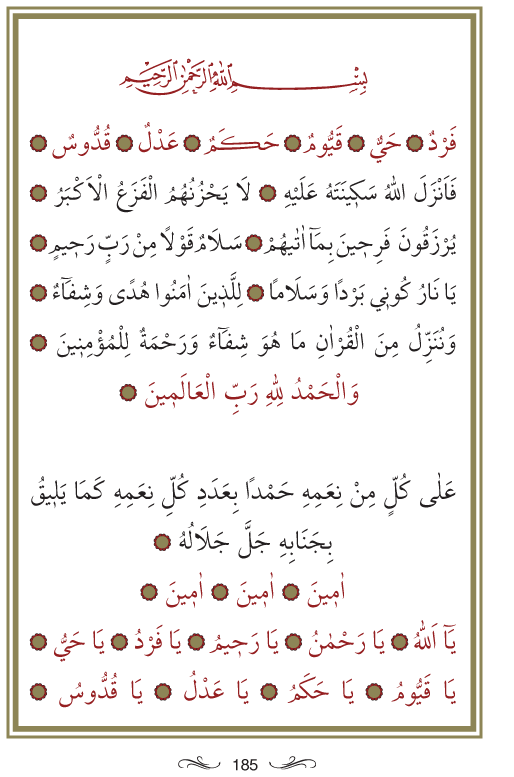 بِسْمِ اللّٰهِ الرَّحْمٰنِ الرَّحِيمِ
فَرْدٌ ۞ حَيٌّ ۞ قَيُّومٌ ۞ حَكَمٌ ۞ عَدْلٌ ۞ قُدُّوسٌ ۞
فَاَنْزَلَ اللّٰهُ سَكِينَتَهُ عَلَيْهِ ۞ لَا يَحْزُنُهُمُ الْفَزَعُ الْاَكْبَرُ ۞
يُرْزَقُونَ فَرِحِينَ بِمَٓا اٰتٰيهُمْ ۞ سَلَامٌ قَوْلًا مِنْ رَبٍّ رَحِيمٍ ۞
يَا نَارُ كُونِي بَرْدًا وَسَلَامًا ۞ لِلَّذِينَ اٰمَنُوا هُدًى وَشِفَٓاءٌ ۞
وَنُنَزِّلُ مِنَ الْقُرْاٰنِ مَا هُوَ شِفَٓاءٌ وَرَحْمَةٌ لِلْمُؤْمِنِينَ ۞
وَالْحَمْدُ لِلّٰهِ رَبِّ الْعَالَمِينَ ۞
عَلٰى كُلٍّ مِنْ نِعَمِهِ حَمْدًا بِعَدَدِ كُلِّ نِعَمِهِ كَمَا يَلِيقُ
بِجَنَابِهِ جَلَّ جَلَالُهُ ۞
اٰمِينَ ۞ اٰمِينَ ۞ اٰمِينَ ۞
يَٓا اَللّٰهُ ۞ يَا رَحْمٰنُ ۞ يَا رَحِيمُ ۞ يَا فَرْدُ ۞ يَا حَيُّ ۞
يَا قَيُّومُ ۞ يَا حَكَمُ ۞ يَا عَدْلُ ۞ يَا قُدُّوسُ ۞
185